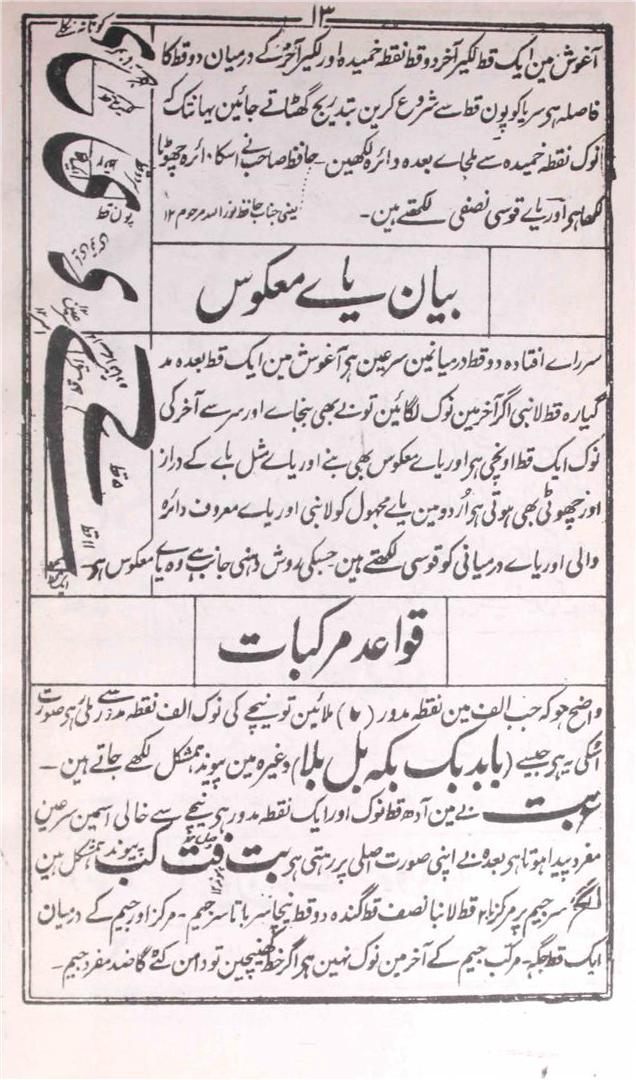 ۱۳
آغوش مین ایک قط لکیر آخر دو قط نقطہ خمیدہ اور لکیر آخر کے درمیان دو قط کا
فاصلہ ہی سر یا کو پون قط سے شروع کرین بتدریج گھٹاتے جائین یہانتک کہ
نوک نقطہ خمیدہ سے ملجاے بعدہ دائرہ لکھین ۔ حافظ صاحب نے اسکا دائرہ چھوٹا
لکھا ہی اور یاے قوسی نصفی لکھتے ہین ۔
یعنی جناب حافظ نور اللہ مرحوم ۱۲
پون قط
بیان یاے معکوس
سر راے افتادہ دو قط درمیانمین سر عین ہی آغوش مین ایک قط بعدہ مد
گیارہ قط لانبی اگر آخر مین نوک لگائین تو نے بھی بنجاے اور سر سے آخر کی
نوک ایک قط اونچی ہی اور یاے معکوس بھی بنے اور یاے مثل بے کے دراز
اور چھوٹی بھی ہوتی ہی اُردو مین یاے مجہول کو لانبی اور یاے معروف دائرہ
والی اور یاے درمیانی کو قوسی لکھتے ہین ۔ جسکی روش دہنی جانب ہے وہ یاے معکوس ہی
۵ قط
۱۱ قط
قواعد مرکبات
واضح ہو کہ جب الف مین نقطہ مدور ملائین تو نیچے کی نوک الف نقطہ مدور سے ملی ہی صورت
اسکی یہ ہی جیسے (با بد بک بکہ بل بلا) وغیرہ مین پیوند ہمشکل لکھے جاتے ہین ۔
بے مین آدھ قط نوک اور ایک نقطہ مدور ہی نیچے سے خالی اسمین سر عین
مفرد پیدا ہوتا ہی بعدہ بے اپنی صورت اصلی پر رہتی ہی بت فت کب پیوند ہمشکل ہین
سر جیم پر مرکز ۲ قط لانبا نصف قط گندہ دو قط نیچا سر با تا سر جیم ۔ مرکز اور جیم کے درمیان
ایک قط جگہ ۔ مرکب جیم کے آخر مین نوک نہین ہی اگر خط کھینچین تو دامن کٹے گا ضد مفرد جیم ۔